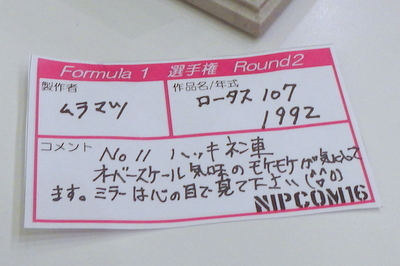 Formula 1 選手権 Round2
製作者
ムラマツ
作品名/年式
ロータス 107
1992
コメント
No 11 ハッキネン車
オーバースケール気味のモケモケが気に入って
ます。ミラーは心の目で見て下さい(^^0)
NIPCOM16